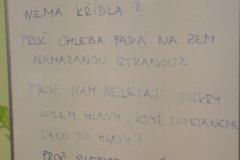 NEMÁ KŘÍDLA?
PROČ CHLEBA PADÁ NA ZEM
NAMAZANOU STRANOU?
PROČ NÁM NELÉTAJÍ JISKRY
KOLEM HLAVY, KDYŽ DOSTANEME
RÁNO DO HLAVY?
PROČ